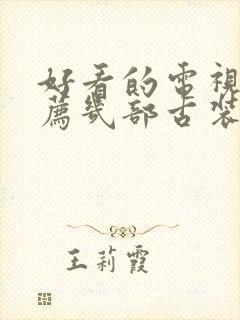 好看的電視
薦幾部古裝
王莉霞